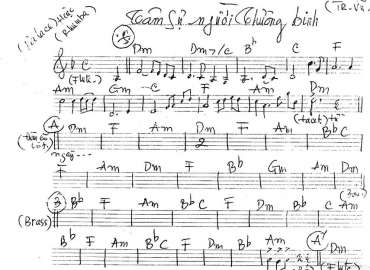 Tâm Sự người Thương binh
(TR. Vũ
(Rhumba)
Dm Dm7/C Bb C F
(Flute)
Am Gm C F Am Dm
A Dm F Am Dm F Am Bb C
2
F Am Dm F Bb Gm Am Dm
B Bb F Am Bb C F Dm Bb C Am
(Brass)
Bb F Am Bb C F Dm Bb Am A Dm
(Flute)